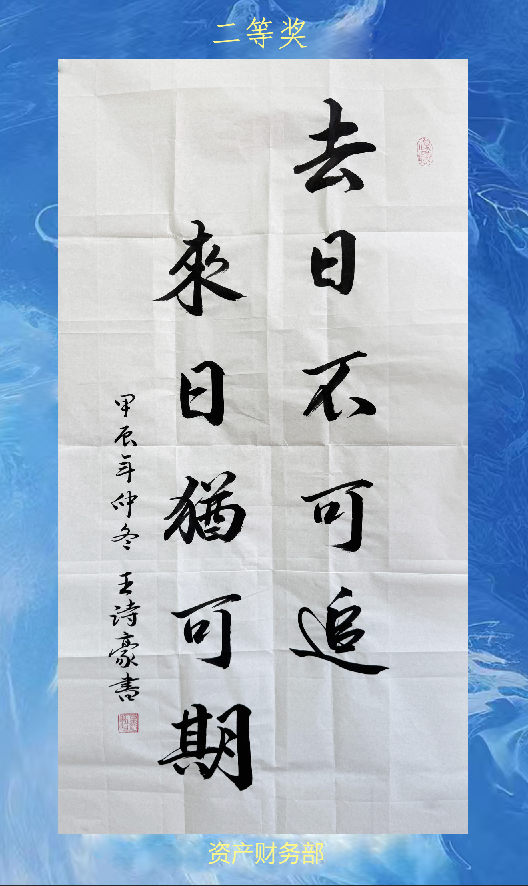 二等奖
去日不可追
來日猶可期
甲辰年仲冬 王诗豪書
资产财务部